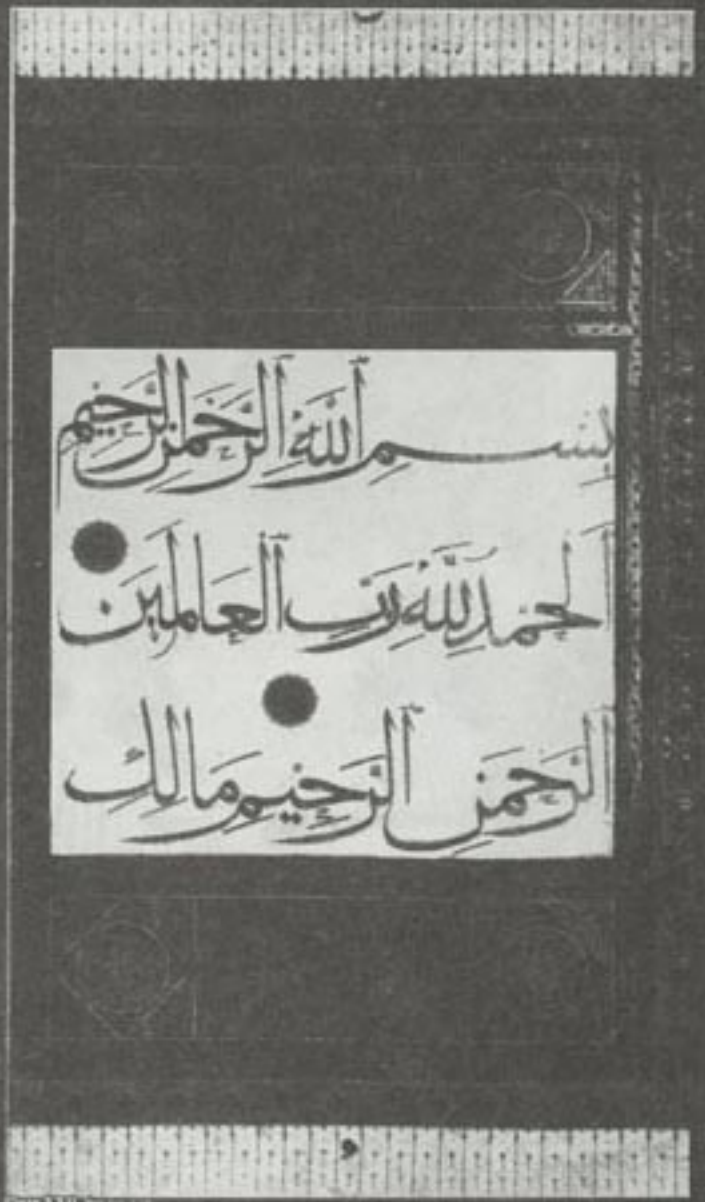 بِسْمِ ٱللَّهِ ٱلرَّحْمَٰنِ ٱلرَّحِيمِ
ٱلْحَمْدُ لِلَّهِ رَبِّ ٱلْعَالَمِينَ
ٱلرَّحْمَٰنِ ٱلرَّحِيمِ مَالِكِ